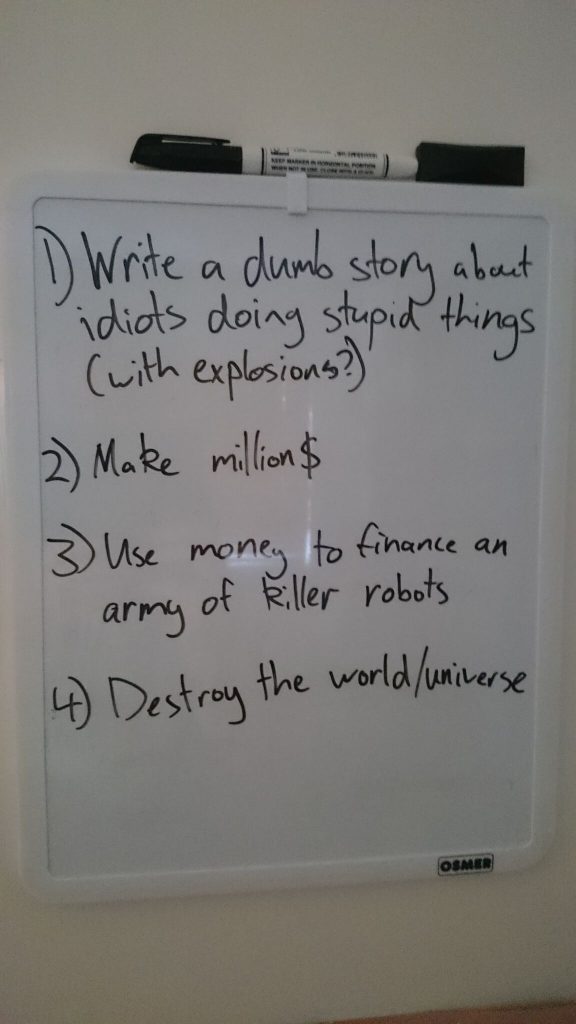 KEEP MARKER IN HORIZONTAL POSITION
1) Write a dumb story about
idiots doing stupid things
(with explosions?)
2) Make million$
3) Use money to finance an
army of killer robots
4) Destroy the world/universe
OSMER